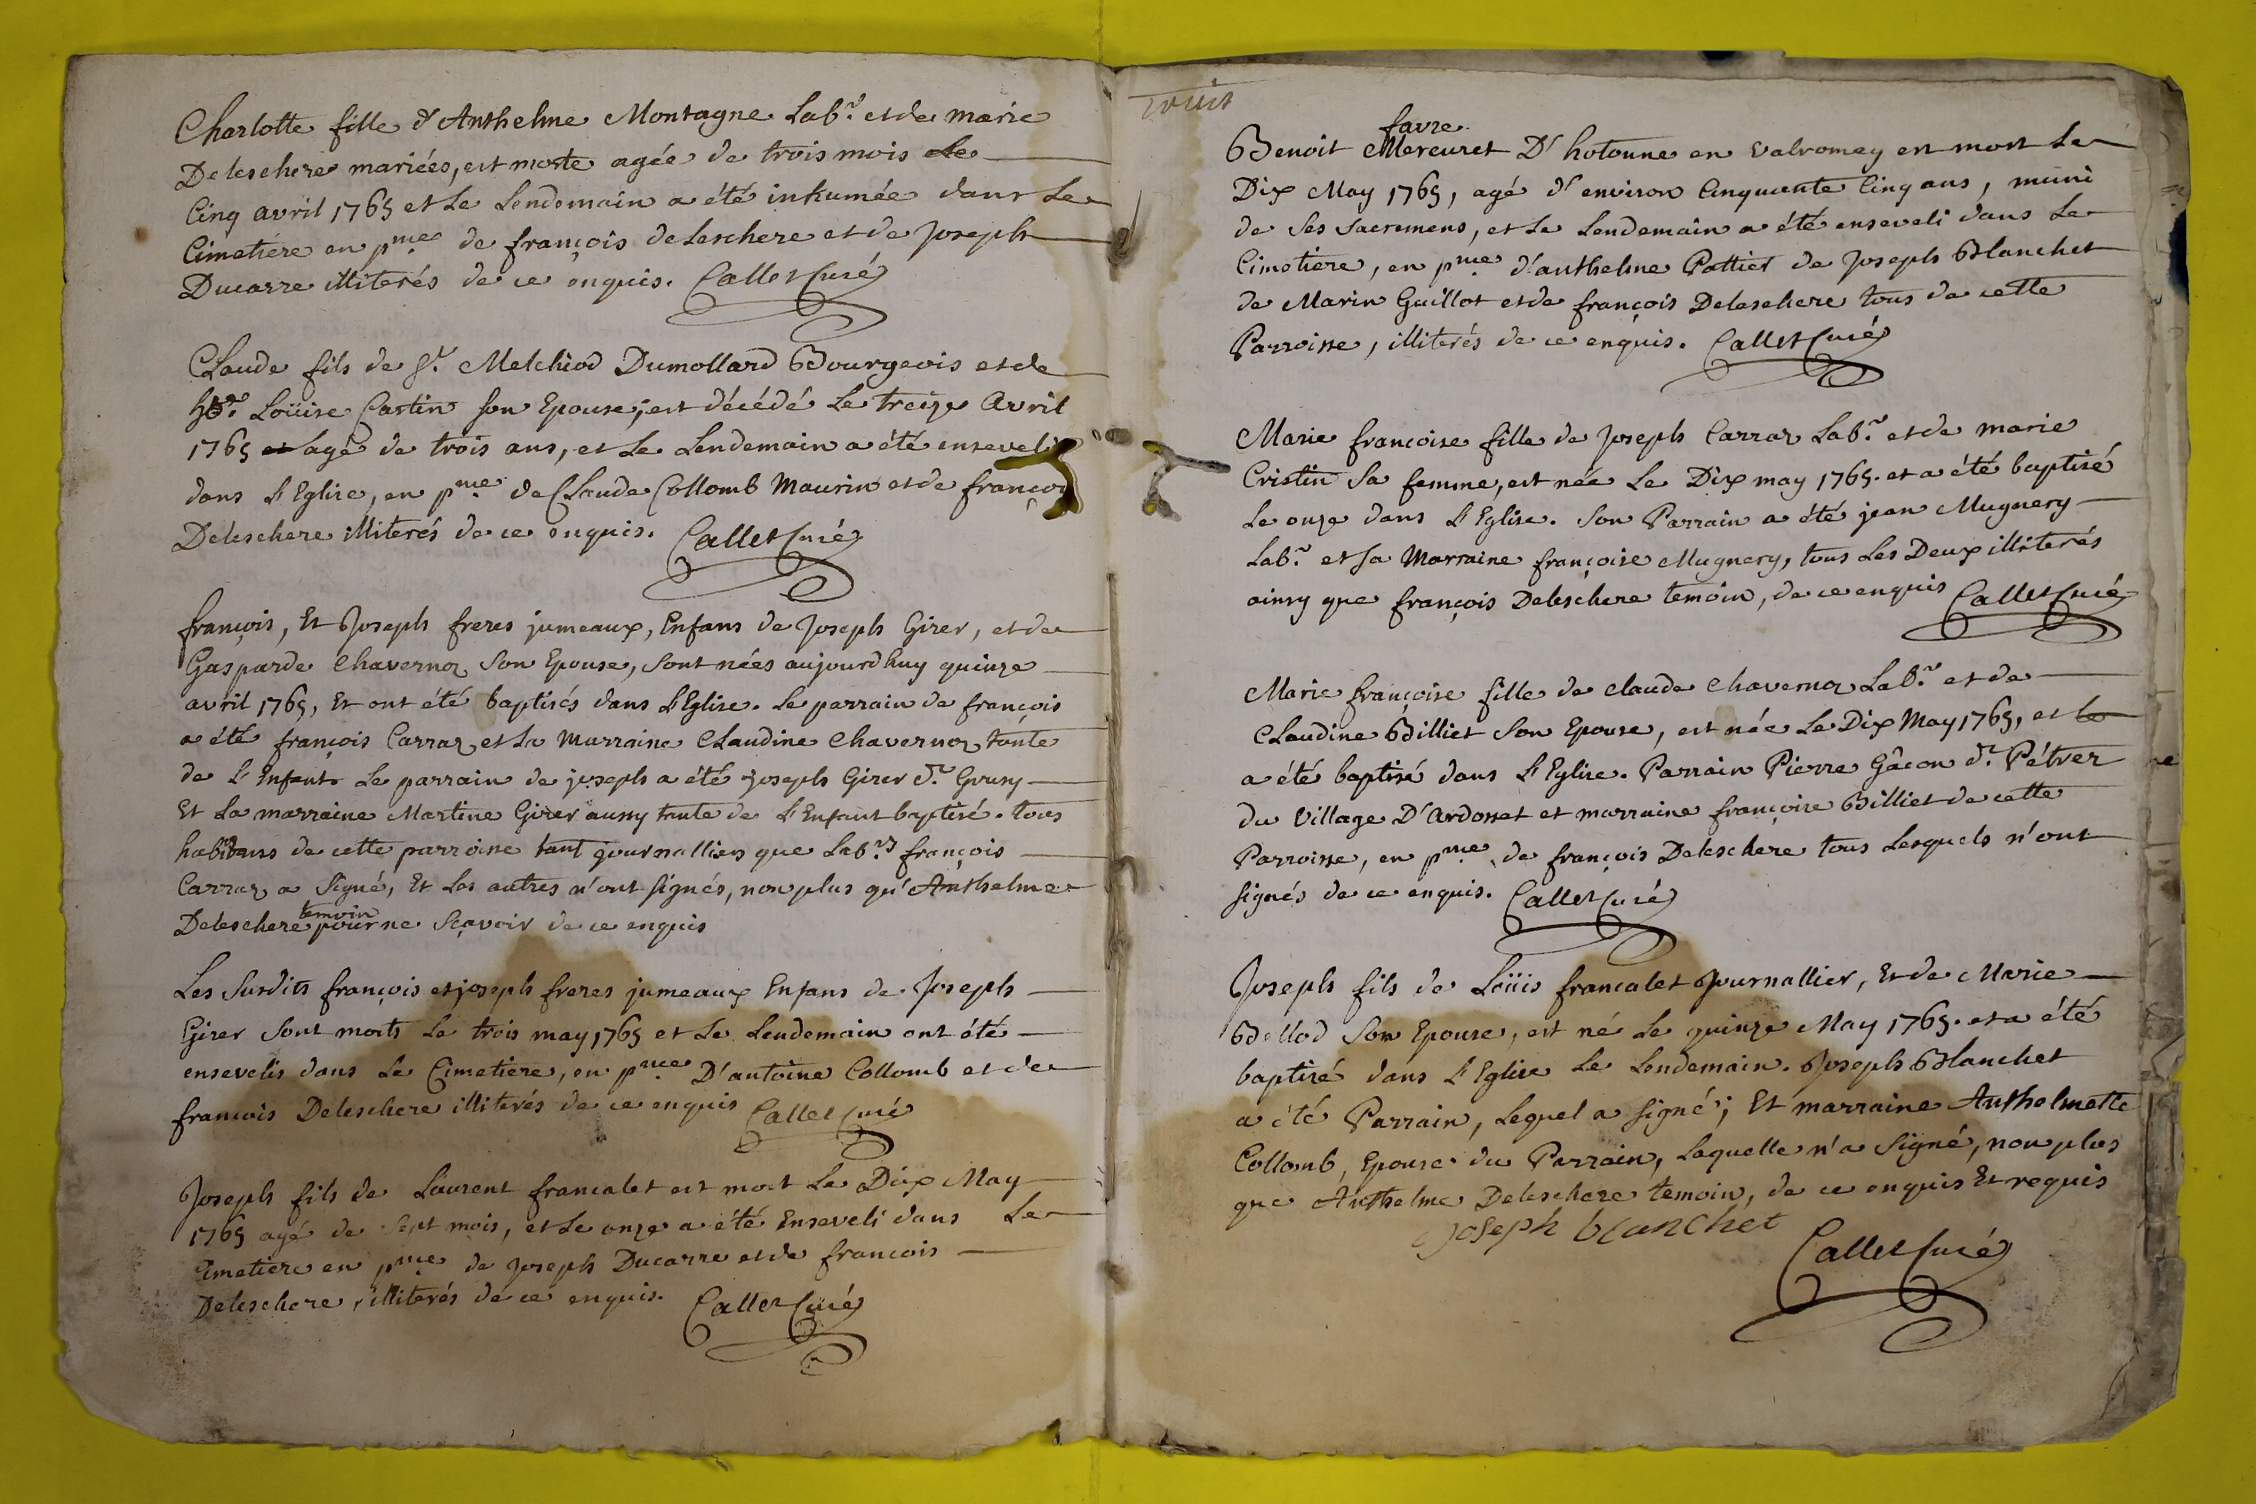 Charlotte fille d'Anthelme Montagne Lab.r et de marie
Deleschere mariées, est morte agée de trois mois le
Cinq avril 1765 et Le Lendemain a été inhumée dans Le
Cimetiere en p.nce de françois deleschere et de Joseph
Ducarre illiterés de ce enquis. Callet Curé
Claude fils de S.r Melchiod Dumollard Bourgeois et de
Loüise Castin son Epouse, est décédé Le treize Avril
1765 et agé de trois ans, et Le Lendemain a été enseveli
dans L'Eglise, en p.nce de Claude Collomb Maurin et de françois
Deleschere illiterés de ce enquis. Callet Curé
françois, Et Joseph freres jumeaux, Enfans de Joseph Girer, et de
Gasparde Chavernoz son Epouse, sont nées aujourdhuy quinze
avril 1765, Et ont été baptisés dans L'Eglise. Le parrain de françois
a été françois Carraz et La Marraine Claudine Chavernoz tante
de L'Enfant. Le parrain de joseph a été joseph Girer d.t
Et La marraine Martine Girer aussy tante de L'Enfant baptisé. tous
habitans de cette parroisse tant journalliers que Lab.rs françois
Carraz a signé, Et Les autres n'ont signés, non plus qu'Anthelme
Deleschere temoin pour ne sçavoir de ce enquis
Les susdits françois et joseph freres jumeaux Enfans de Joseph
Girer sont morts Le trois may 1765 et Le Lendemain ont été
ensevelis dans Le Cimetiere, en p.nce D'antoine Collomb et de
françois Deleschere illiterés de ce enquis Callet Curé
Joseph fils de Laurent francalet est mort Le Dix May
1765 agé de Sept mois, et Le onze a été Enseveli dans Le
Cimetiere en p.nce de Joseph Ducarre et de françois
Deleschere, illiterés de ce enquis. Callet Curé
Benoit favre Mercuret D'hotonne en Valromey est mort Le
Dix May 1765, agé d'environ Cinquante Cinq ans, muni
de ses sacremens, et Le Lendemain a été enseveli dans Le
Cimetiere, en p.nce d'anthelme Pottier de Joseph Blanchet
de Marin Guillot et de françois Deleschere tous de cette
Parroisse, illiterés de ce enquis. Callet Curé
Marie françoise fille de Joseph Carraz Lab.r et de marie
Cristin Sa femme, est née Le Dix may 1765. et a été baptisé
Le onze dans L'Eglise. Son Parrain a été jean Mugnery
Lab.r et sa Marraine françoise Mugnery, tous Les Deux illiterés
ainsy que françois Deleschere temoin, de ce enquis Callet Curé
Marie françoise fille de claude Chavernoz Lab.r et de
Claudine Billiet son Epouse, est née Le Dix May 1765, et le
a été baptisé dans L'Eglise. Parrain Pierre Gâcon d.t Pétrer
du Village D'Ardosset et marraine françoise Billiet de cette
Parroisse, en p.nce de françois Deleschere tous Lesquels n'ont
signés de ce enquis. Callet Curé
Joseph fils de Loüis francalet Journallier, Et de Marie
Bellod son Epouse, est né Le quinze May 1765. et a été
baptisé dans L'Eglise Le Lendemain. Joseph Blanchet
a été Parrain, Lequel a signé; Et marraine Anthelmette
Collomb, Epouse du Parrain, Laquelle n'a signé, non plus
que Anthelme Deleschere temoin, de ce enquis Et requis
joseph blanchet
Callet Curé